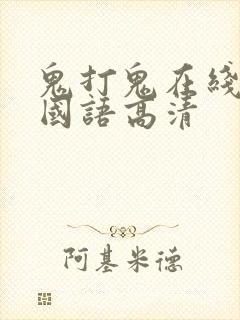 鬼打鬼在綫
國語高清
阿基米德